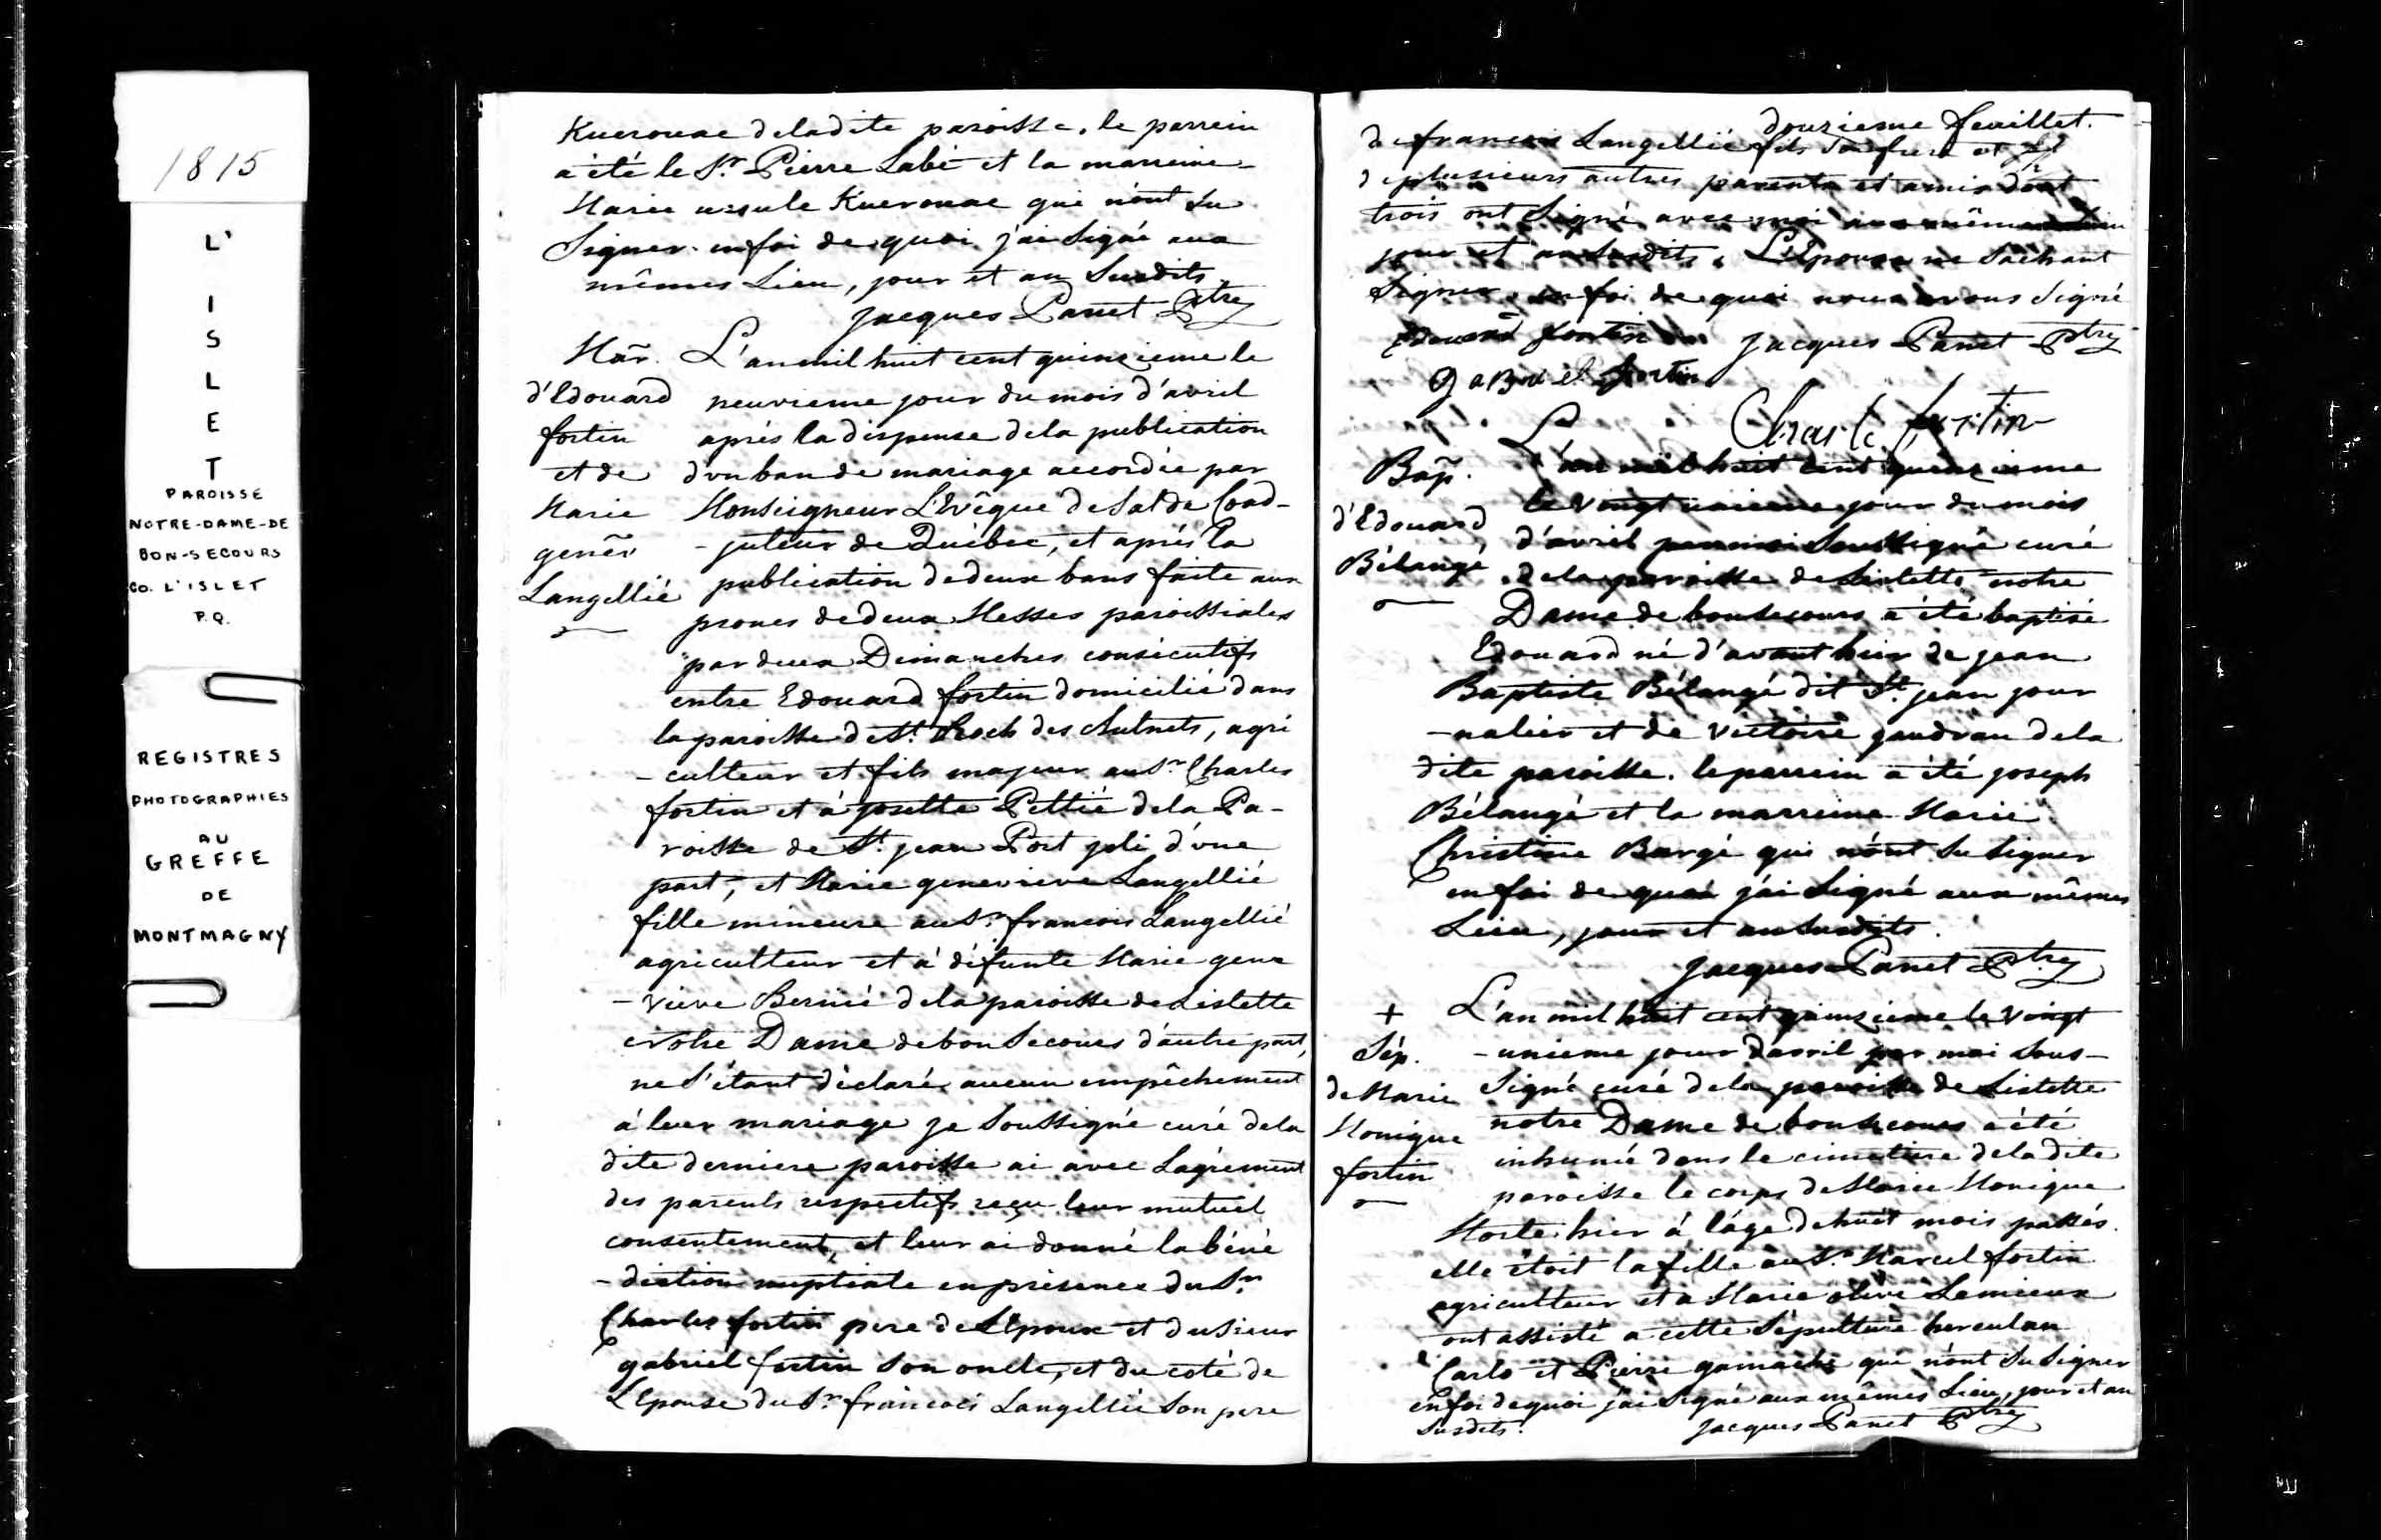 1815
L'
I
S
L
E
T
PAROISSE
NOTRE-DAME-DE
BON-SECOURS
CO. L'ISLET
P.Q.
REGISTRES
PHOTOGRAPHIES
AU
GREFFE
DE
MONTMAGNY
Kuerouac deladite paroisse. le parrein
a été le Sr. Pierre Labé et la marreine
Marie ursule Kuerouac qui n'ont su
Signer. en foi de quoi j'ai Signé aux
mêmes Lieu, jour et an Susdits.
Jacques Panet Ptre
Mar.
d'Edouard
fortin
et de
Marie
genev
Langellié
L'an mil huit cent quinzieme le
neuvieme jour du mois d'avril
aprés la dispense dela publication
d'un ban de mariage accordée par
Monseigneur L'Evêque de Saldes Coad-
-juteur de Québec, et aprés la
publication de deux bans faite aux
prones de deux Messes paroissiales
par deux Dimanches consécutifs
entre Edouard fortin domicilié dans
la paroisse de St. Roch des Aulnets, agri
-culteur et fils majeur au Sr. Charles
fortin et à josette Peltié dela Pa-
roisse de St. jean Port joli d'une
part, et Marie genevieve Langellié
fille mineure au Sr. francois Langellié
agriculteur et à défunte Marie gene
-vieve Bernié dela paroisse de Lislette
notre Dame de bon Secours d'autre part,
ne S'étant déclaré aucun empêchement
à leur mariage je Soussigné curé dela
dite derniere paroisse ai avec Lagrément
des parents respectifs reçu leur mutuel
consentement, et leur ai donné la béné
-diction nuptiale en présence du Sr.
Charles fortin pere de L'Epoux et du Sieur
gabriel fortin Son oncle, et du coté de
L'Epouse du Sr. francois Langellié Son pere
douzieme feuillet.
de francois Langellié fils Son frere et
de plusieurs autres parents et amis dont
trois ont Signé avec moi aux mêmes Lieu
jour et an Susdits. L'Epouse ne Sachant
Signer. en foi de quoi nous avons Signé
Edouard fortin Jacques Panet Ptre
gabriel fortin
Charle fortin
Bap.
d'Edouard
Bélangé
L'an mil huit cent quinzieme
le vingt unieme jour du mois
d'avril par moi Soussigné curé
dela paroisse de Lislette notre
Dame de bonsecours a été baptisé
Edouard né d'avant hier de jean
Baptiste Bélangé dit St. jean jour
-nalier et de Victoire gaudrau dela
dite paroisse. le parrein a été joseph
Bélangé et la marreine Marie
Christine Bargé qui n'ont Su Signer
en foi de quoi j'ai Signé aux mêmes
Lieu, jour et an Susdits.
Jacques Panet Ptre
+
Sép.
de Marie
Monique
fortin
L'an mil huit cent quinzieme le vingt
-unieme jour d'avril par moi Sous-
Signé curé dela paroisse de Lislette
notre Dame de bonsecours a été
inhumé dans le cimetiere deladite
paroisse le corps de Marie Monique
Morte hier à l'âge de huit mois passés.
elle étoit la fille au Sr. Marcel fortin
agriculteur et a Marie olive Lemieux
ont assisté a cette Sépulture herculan
Carlo et Pierre gamache qui n'ont Su Signer
en foi de quoi j'ai Signé aux mêmes Lieu, jour et an
Susdits. Jacques Panet Ptre